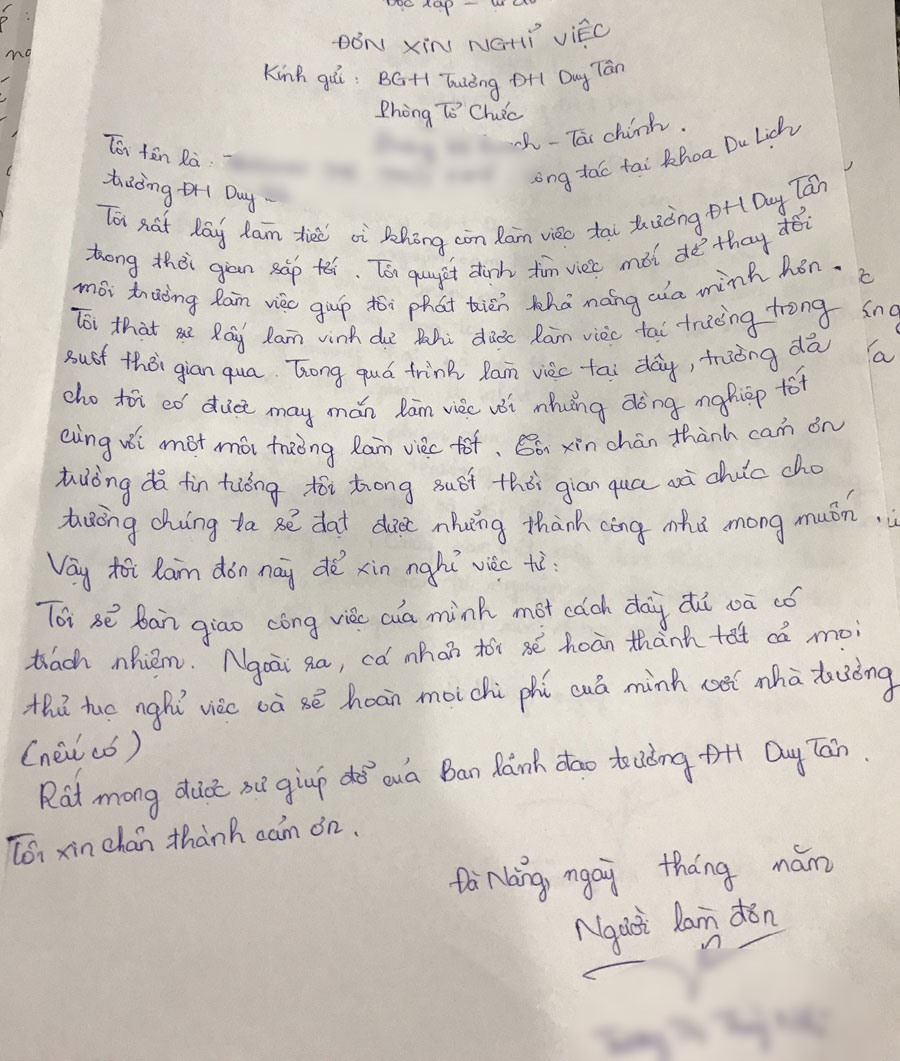 Độc lập - Tự do
ĐƠN XIN NGHỈ VIỆC
Kính gửi : BGH Trường ĐH Duy Tân
Phòng Tổ Chức
ch - Tài chính .
Tôi tên là : ông tác tại khoa Du Lịch
trường ĐH Duy
Tôi rất lấy làm tiếc vì không còn làm việc tại trường ĐH Duy Tân
trong thời gian sắp tới . Tôi quyết định tìm việc mới để thay đổi
môi trường làm việc giúp tôi phát triển khả năng của mình hơn .
Tôi thật sự lấy làm vinh dự khi được làm việc tại trường trong
suốt thời gian qua . Trong quá trình làm việc tại đây , trường đã
cho tôi có được may mắn làm việc với những đồng nghiệp tốt
cùng với một môi trường làm việc tốt . Tôi xin chân thành cảm ơn
trường đã tin tưởng tôi trong suốt thời gian qua và chúc cho
trường chúng ta sẽ đạt được những thành công như mong muốn .
Vậy tôi làm đơn này để xin nghỉ việc từ :
Tôi sẽ bàn giao công việc của mình một cách đầy đủ và có
trách nhiệm . Ngoài ra , cá nhân tôi sẽ hoàn thành tất cả mọi
thủ tục nghỉ việc và sẽ hoàn mọi chi phí của mình với nhà trường
(nếu có)
Rất mong được sự giúp đỡ của Ban lãnh đạo trường ĐH Duy Tân .
Tôi xin chân thành cảm ơn .
Đà Nẵng, ngày tháng năm
Người làm đơn